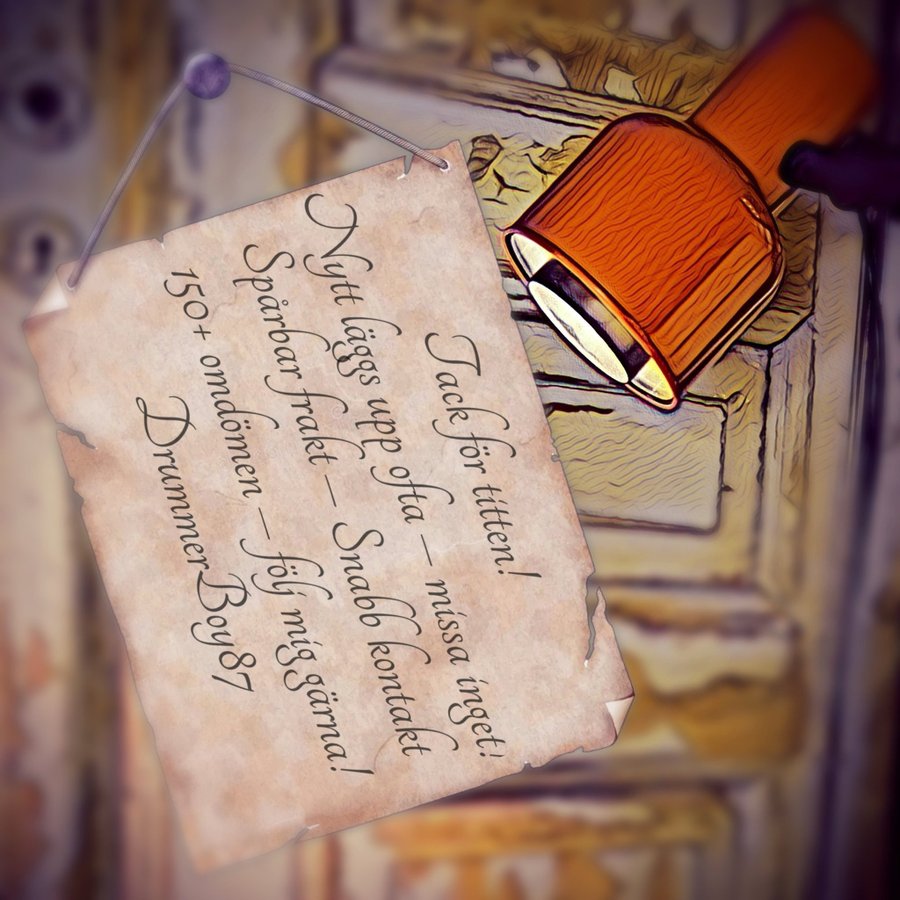 Tack för titten!
Nytt läggs upp ofta – missa inget!
Spårbar frakt – Snabb kontakt
150+ omdömen – följ mig gärna!
DrummerBoy87